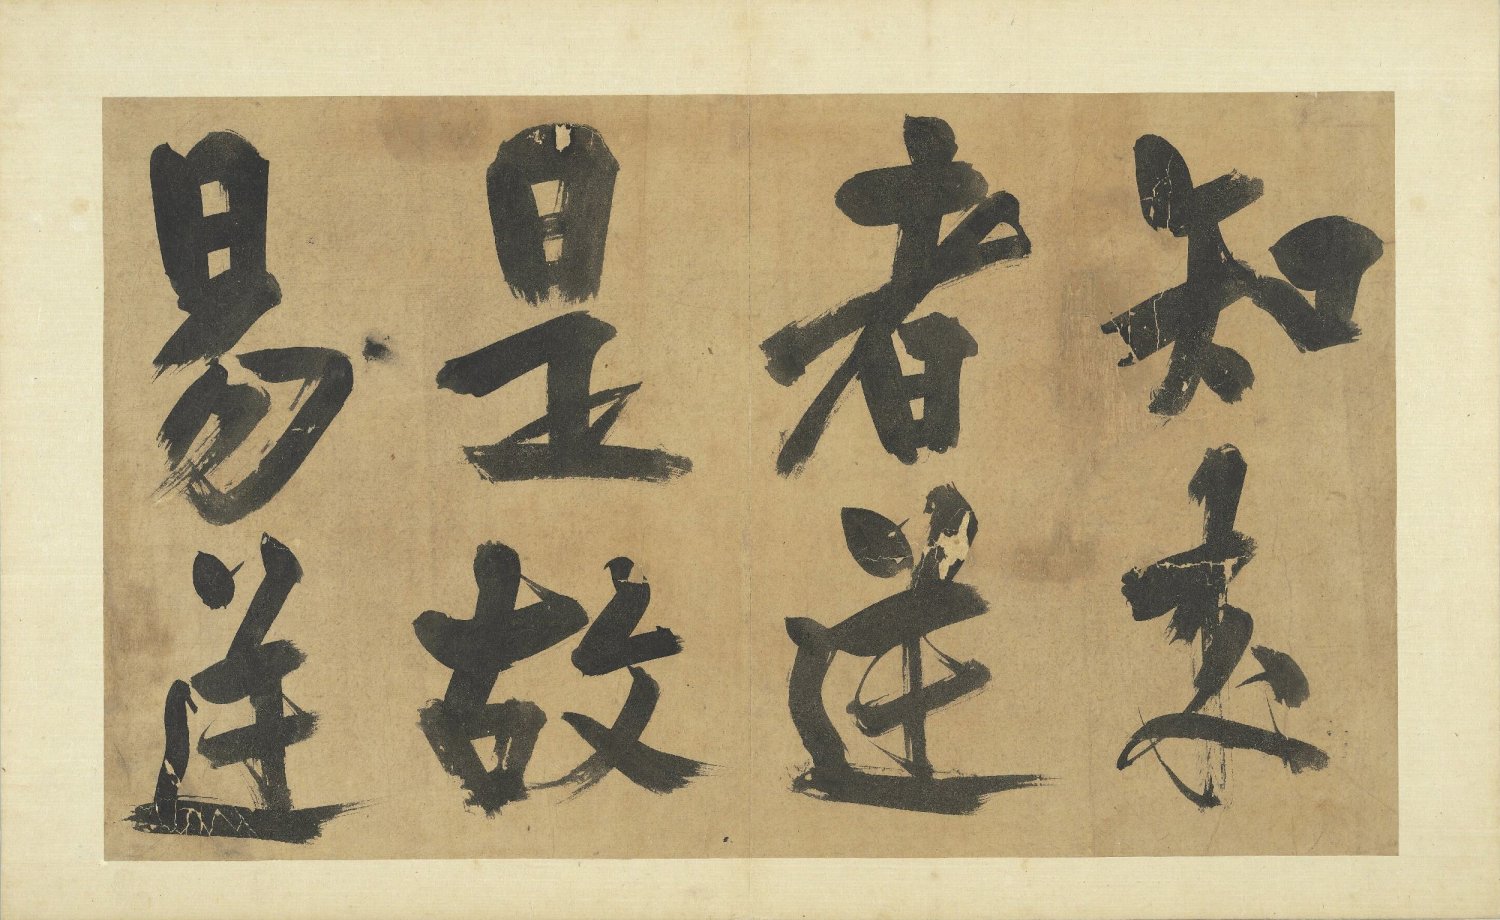 知来
者逆
是故
易逆